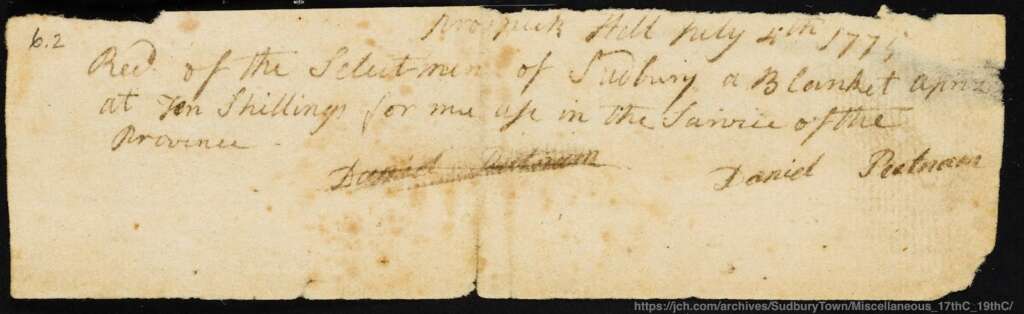 6.2
Prospeck Hill July 4th 1775
Recd of the Select men of Sudbury a Blanket
at Ten Shillings for me use in the Sarvice of the
Province
Daniel Putnam
Daniel Putnam
https://jch.com/archives/SudburyTown/Miscellaneous_17thC_19thC/